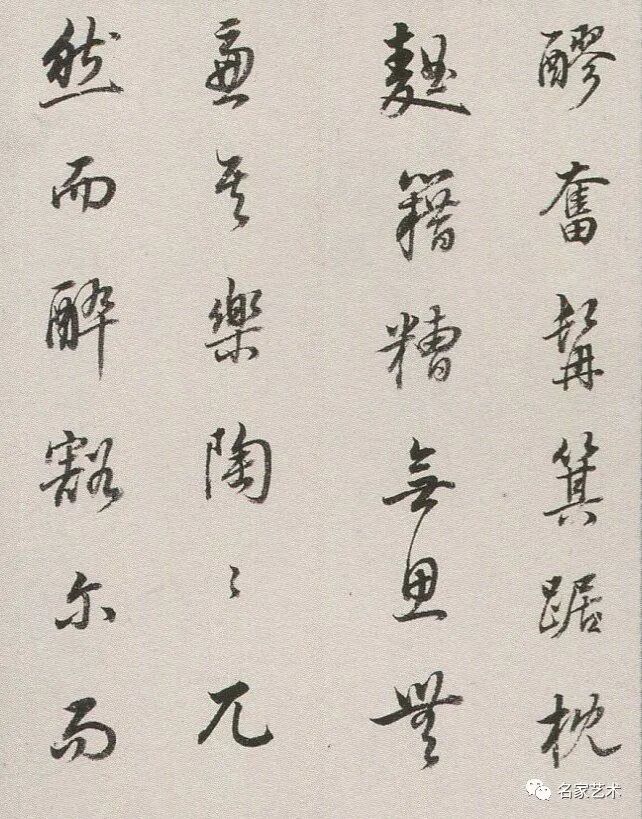 醪奮髯箕踞枕
麴籍糟無思無
慮其樂陶〻兀
然而酔豁尔而
名家艺术